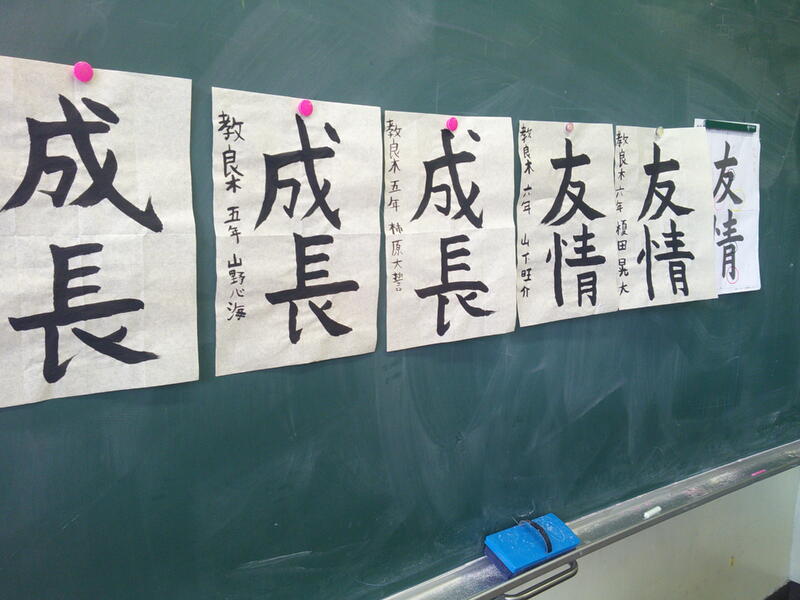 成長
成長
教良木 五年 山野心海
成長
教良木 五年 柿原大誓
友情
教良木 六年 山下旺介
友情
教良木 六年 植田晃大
友情